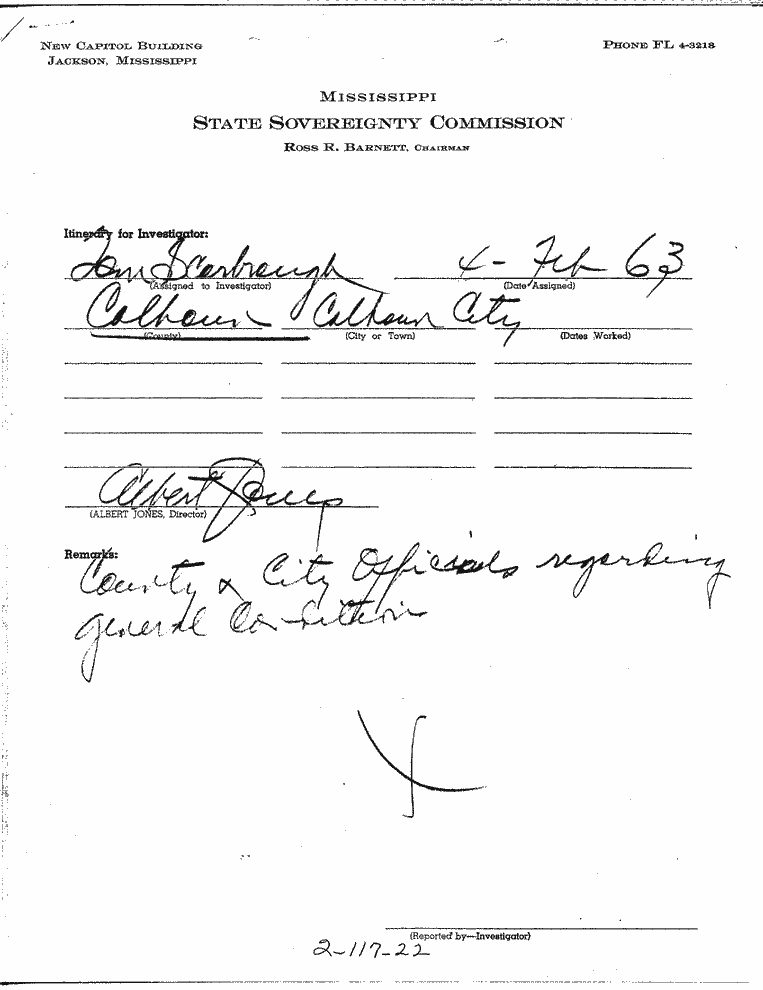 NEW CAPITOL BUILDING
JACKSON, MISSISSIPPI
PHONE FL 4-3218
MISSISSIPPI
STATE SOVEREIGNTY COMMISSION
ROSS R. BARNETT, CHAIRMAN
Itinerary for Investigator:
Tom Scarbrough 4- Feb 63
(Assigned to Investigator) (Date Assigned)
Calhoun Calhoun City
(County) (City or Town) (Dates Worked)
Albert Jones
(ALBERT JONES, Director)
Remarks:
County & City Officials regarding
general Condition
(Reported by—Investigator)
2-117-22